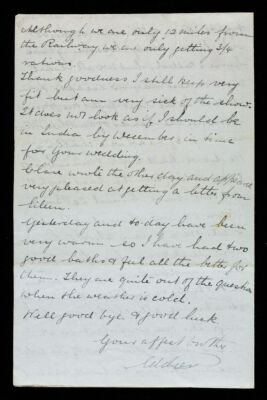 Although we are only 12 miles from
the Railway we are only getting 3/4
rations.
Thank goodness I still keep very
fit but am very sick of the show.
It does not look as if I should be
in India by December, in time
for your wedding.
Clare wrote the other day and appeared
very pleased at getting a letter from
Ellen.
Yesterday and to-day have been
very warm - so I have had two
good baths & feel all the better for
them. They are quite out of the question
when the weather is cold.
Well good bye & good luck
Your affect. brother